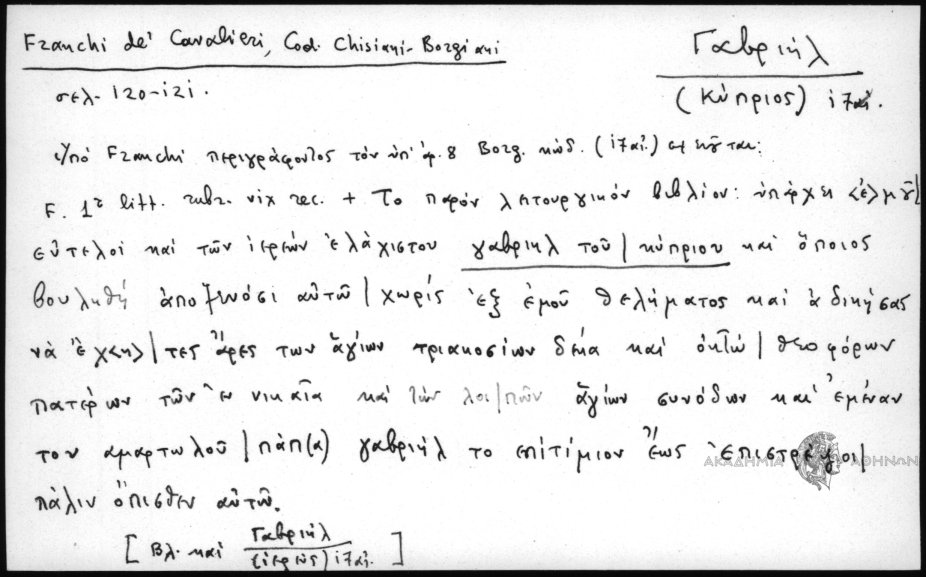 Franchi de' Cavalieri, Cod. Chisiani-Borgiani
Γαβριήλ
(Κύπριος) ι7αἰ.
σελ. 120-121.
Ὑπό Franchi περιγράφοντος τόν ὑπ' ἀρ. 8 Borg. κώδ. (ι7αἰ.)
F. 1r litt. rubr. vix rec. + Το παρόν λειτουργικόν βιβλίον: ὑπάρχει <ἐ>μοῦ|
εὐτελοί και τῶν ἱερέων ἐλάχιστου γαβριηλ τοῦ | κύπριου και ὅποιος
βουληθῆ ἀποξενόσι αὐτῶ | χωρίς ἐξ ἐμοῦ θελήματος και ἀδικήσας
νὰ ἒχ<η> | τες ἄρες των ἅγίων τριακοσίων δέκα και ὀκτώ | θεοφόρων
πατέρων τῶν ἐν νικαῖα και τῶν λοι|πῶν ἅγίων συνόδων και ἐμέναν
τον αμαρτωλοῦ | πάπ(α) γαβριήλ το επίτίμιον ἕως ἐπιστρέψοι|
πάλιν ὄπισθεν αὐτῶ.
[Βλ. και Γαβριήλ
(ἱερεύς) ι7αἰ.]
ΑΚΑΔΗΜΙΑ ΑΘΗΝΩΝ